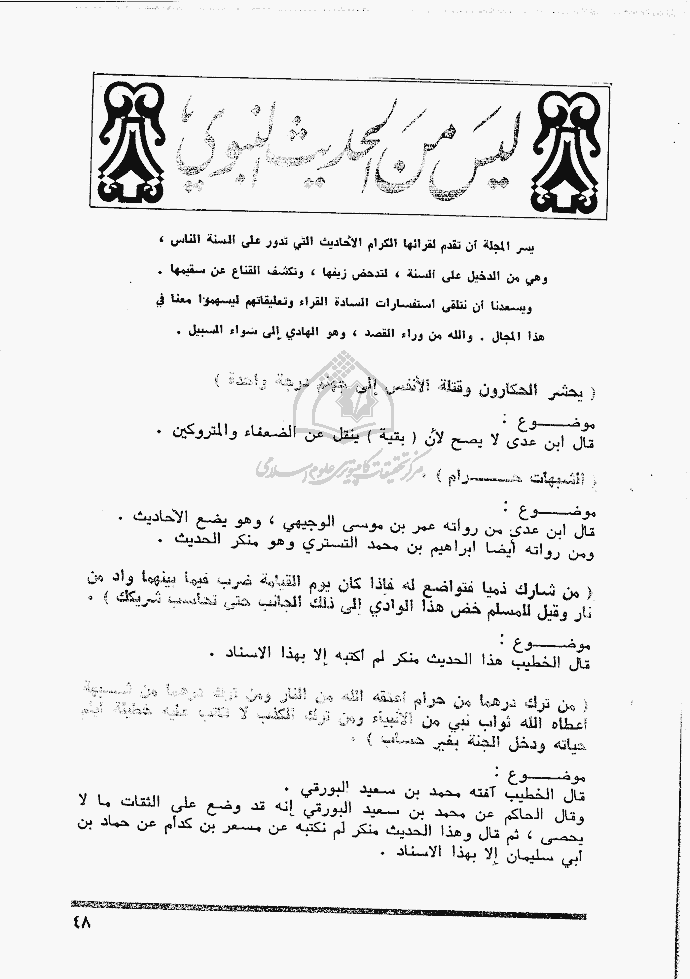 ليسَ منَ الحديث النبوي
يسر المجلة أن تقدم لقرائها الكرام الأحاديث التي تدور على السنة الناس ،
وهي من الدخيل على السنة ، لتدحض زيفها ، وتكشف القناع عن سقيمها .
ويسعدنا أن نتلقى استفسارات السادة القراء وتعليقاتهم ليسهموا معنا في
هذا المجال . والله من وراء القصد ، وهو الهادي إلى سواء السبيل .
( يحشر الحكارون وقتلة الأنفس إلى جهنم درجة واحدة )
موضـــــوع :
قال ابن عدى لا يصح لأن ( بقية ) ينقل عن الضعفاء والمتروكين .
مركز تحقيقات كامپيوتری علوم اسلامی
( الشبهات حـــــرام ) .
موضـــــوع :
قال ابن عدي من رواته عمر بن موسى الوجيهي ، وهو يضع الأحاديث .
ومن رواته أيضا ابراهيم بن محمد التستري وهو منكر الحديث .
( من شارك ذميا فتواضع له فإذا كان يوم القيامة ضرب فيما بينهما واد من
نار وقيل للمسلم خض هذا الوادي إلى ذلك الجانب حتى تحاسب شريكك ) .
موضـــــوع :
قال الخطيب هذا الحديث منكر لم أكتبه إلا بهذا الاسناد .
( من ترك درهما من حرام أعتقه الله من النار ومن ترك درهما من شبهة
أعطاه الله ثواب نبي من الأنبياء ومن ترك الكذب لا تكتب عليه خطيئة أيام
حياته ودخل الجنة بغير حساب ) .
موضـــــوع :
قال الخطيب آفته محمد بن سعيد البورقي .
وقال الحاكم عن محمد بن سعيد البورقي إنه قد وضع على الثقات ما لا
يحصى ، ثم قال وهذا الحديث منكر لم نكتبه عن مسعر بن كدام عن حماد بن
أبي سليمان إلا بهذا الاسناد .
٤٨